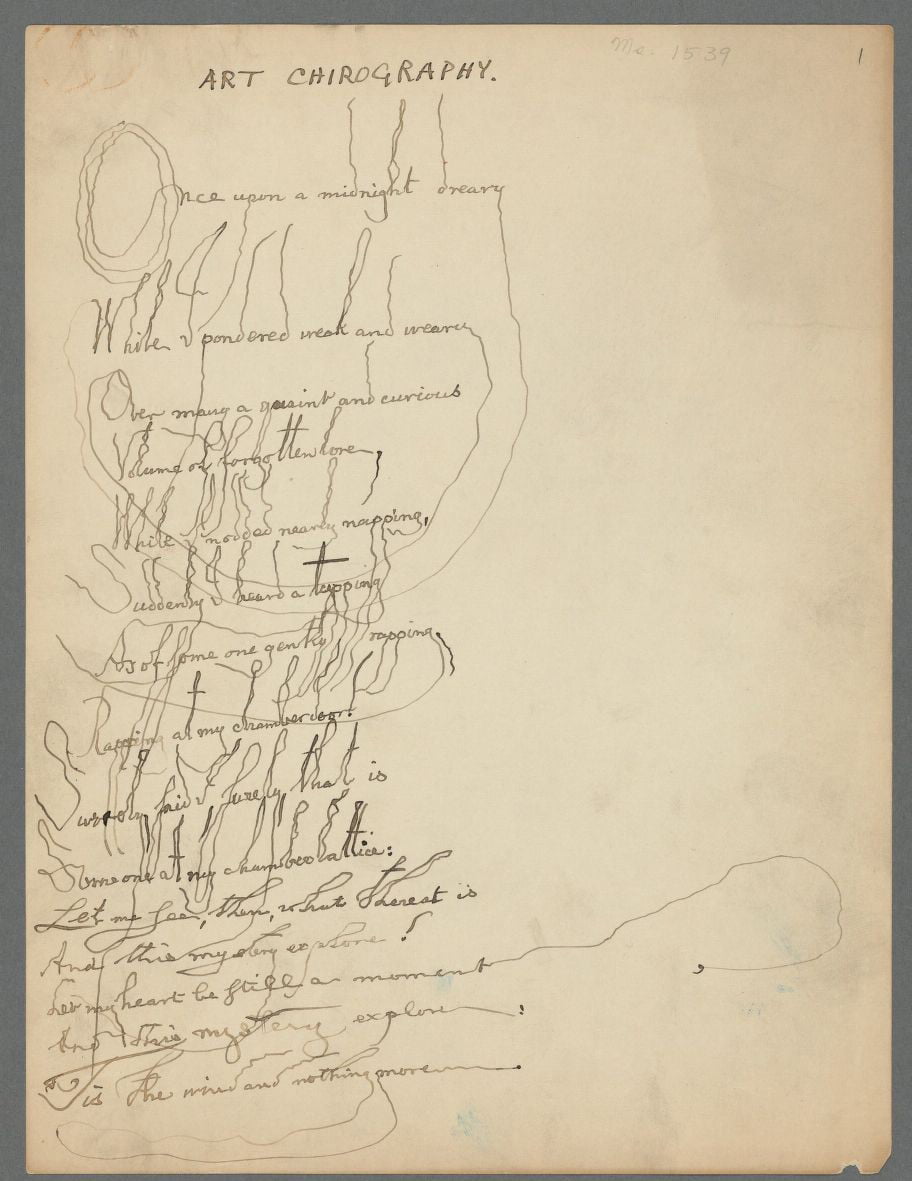 Mc. 1539
1
ART CHIROGRAPHY.
Once upon a midnight dreary
While I pondered weak and weary
Over many a quaint and curious
Volume of forgotten lore,
While I nodded nearly napping,
Suddenly I heard a tapping
As of some one gently rapping,
Rapping at my chamber door.
Surely said I surely that is
Someone at my chamber lattice:
Let me see, then, what thereat is
And this mystery explore!
Let my heart be still a moment,
And this mystery explore:
'Tis the wind and nothing more.